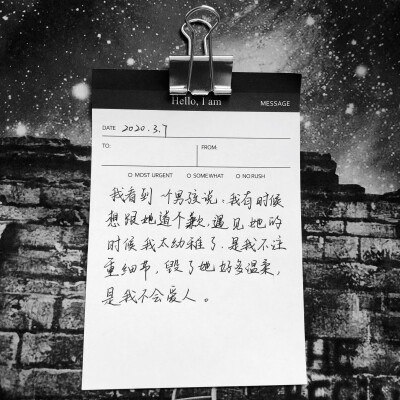 Hello, I am
MESSAGE
DATE 2020.3.7
TO: FROM:
O MOST URGENT O SOMEWHAT O NO RUSH
我看到一个男孩说,我有时候
想跟她道个歉,遇见她的
时候我太幼稚了.是我不注
重细节,毁了她好多温柔,
是我不会爱人。